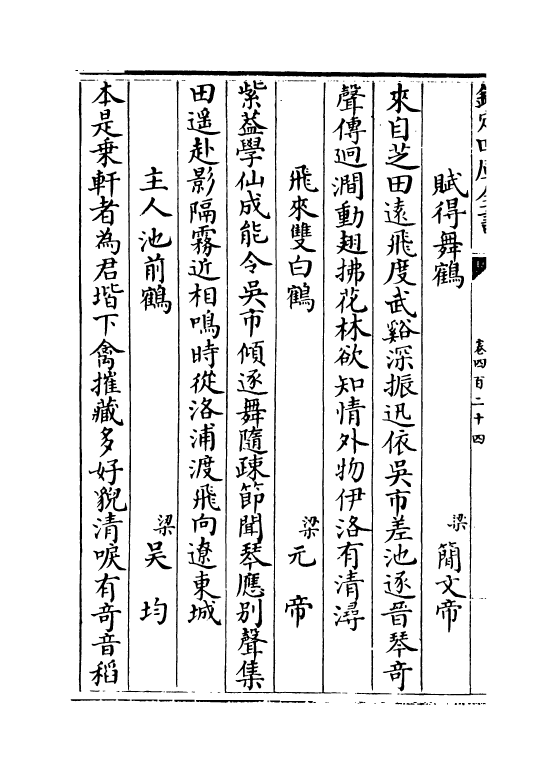 欽定四庫全書
卷四百二十四
賦得舞鶴 梁簡文帝
來自芝田遠飛度武谿深振迅依吳市差池逐晉琴奇
聲傳迥澗動翅拂花林欲知情外物伊洛有清潯
飛來雙白鶴 梁元帝
紫葢學仙成能令吳市傾逐舞隨疎節聞琴應别聲集
田遥赴影隔霧近相鳴時從洛浦渡飛向遼東城
主人池前鶴 梁吴均
本是乗軒者為君堦下禽摧藏多好貌清唳有竒音稻